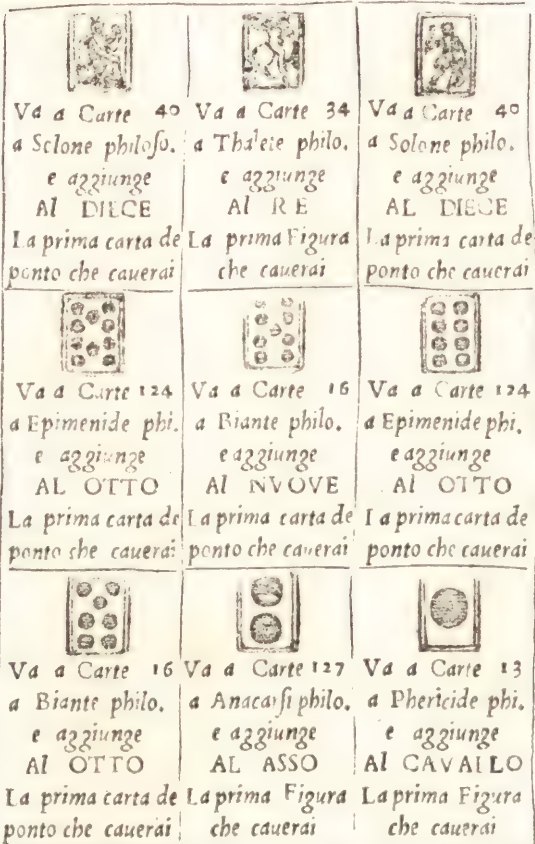 Va a Carte 40
a Solone philoſo.
e aggiunge
Al DIECE
La prima carta de
ponto che cauerai
Va a Carte 34
a Thalete philo.
e aggiunge
Al RE
La prima Figura
che cauerai
Va a Carte 40
a Solone philo.
e aggiunge
AL DIECE
La prima carta de
ponto che cauerai
Va a Carte 124
a Epimenide phi.
e aggiunge
AL OTTO
La prima carta de
ponto che cauerai
Va a Carte 16
a Biante philo.
e aggiunge
Al NVOVE
La prima carta de
ponto che cauerai
Va a Carte 124
a Epimenide phi.
e aggiunge
Al OTTO
La prima carta de
ponto che cauerai
Va a Carte 16
a Biante philo.
e aggiunge
Al OTTO
La prima carta de
ponto che cauerai
Va a Carte 127
a Anacarſi philo.
e aggiunge
AL ASSO
La prima Figura
che cauerai
Va a Carte 13
a Phericide phi.
e aggiunge
Al CAVALLO
La prima Figura
che cauerai